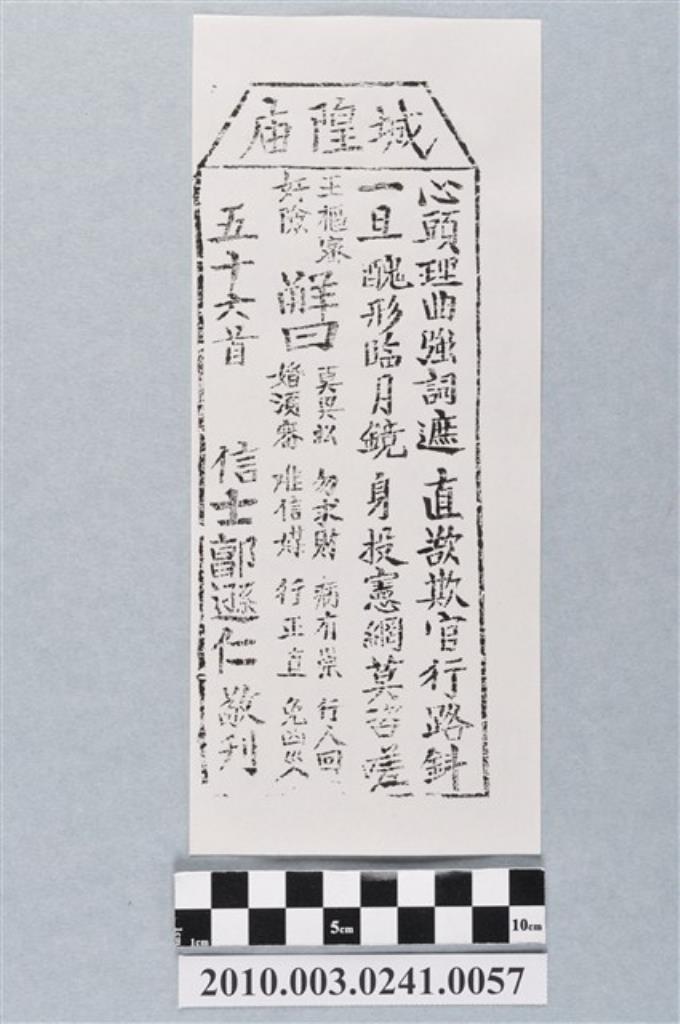 城隍庙
心頭理曲強詞遮 直欲欺官行路斜
一旦醜形臨月鏡 身投憲網莫咨嗟
王樞密
奸險
解曰
莫興訟 勿求財 病有祟 行人回
婚須審 难信媒 行正直 免凶災
五十六首
信士郭遜仁敬刊
1cm 5cm 10cm
2010.003.0241.0057